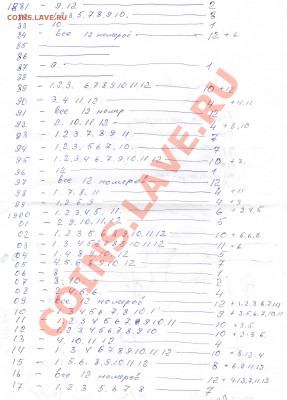 1881 - 9. 12 2
- 1.2.3.5.7.8.9.10. 8
33 - 10. 1
34 - все 12 номеров 12 + 6.
85
86
87 - 9. 1
88
89 - 1.2.3. 6.7.8.9.10.11.12 10 + 12
90 - 3.4 11.12 4 + 4.11
91 - все 12 номер 12
92 - 2. 10. 11. 12 4 + 2.10
93 - 1.2.3 7.8.9 11 7
94 - 1.2.3. 5.6.7. 10. 7
95 - 1.2.3.4 6.7.8.9.10.12 10 + 3.
96 - 12 1
97 - все 12 номеров 12
98 - 1 7. 8. 11 4 + 11
99 - 1.2.6.9 4 + 9
1900 - 1.2.3.4.5. 11 6 + 3.4.5
01 - 2.9.10.11.12 5
02 - 1.2.3.5.6.8.9.10.11.12 10 + 6.6.8
03 - 1. 3.4.5.6.7.8.9.10.11.12 11 + 6
04 - 1.4.8.9.10.12 5
05 - 4.5.6.8.9.10.12 7
06 - 8 1
07 - 8. 10. 2
08 - 2.4.5.6 4
09 все 12 номеров 12
10 - 1.3.4.5.6.7.8.10.1 9
11 - 1.2.3.4.5.6.7.8.9.10.11 10 + 3.5
12 - 1.2.3.4.5.6.7.8.9.10 10
13 - 4.10.11.12 4
14 - 1. 3.4.6.7.8.9.10.11.12 10 + 8.12.4
15 - 1. 5.6. 8.9.10.11.12 8 + 6.8.11.12
16 - все 12 номеров 12
17 - 1. 2. 3 5. 6. 7 8 7
COINS.LAVE.RU
COINS.LAVE.RU